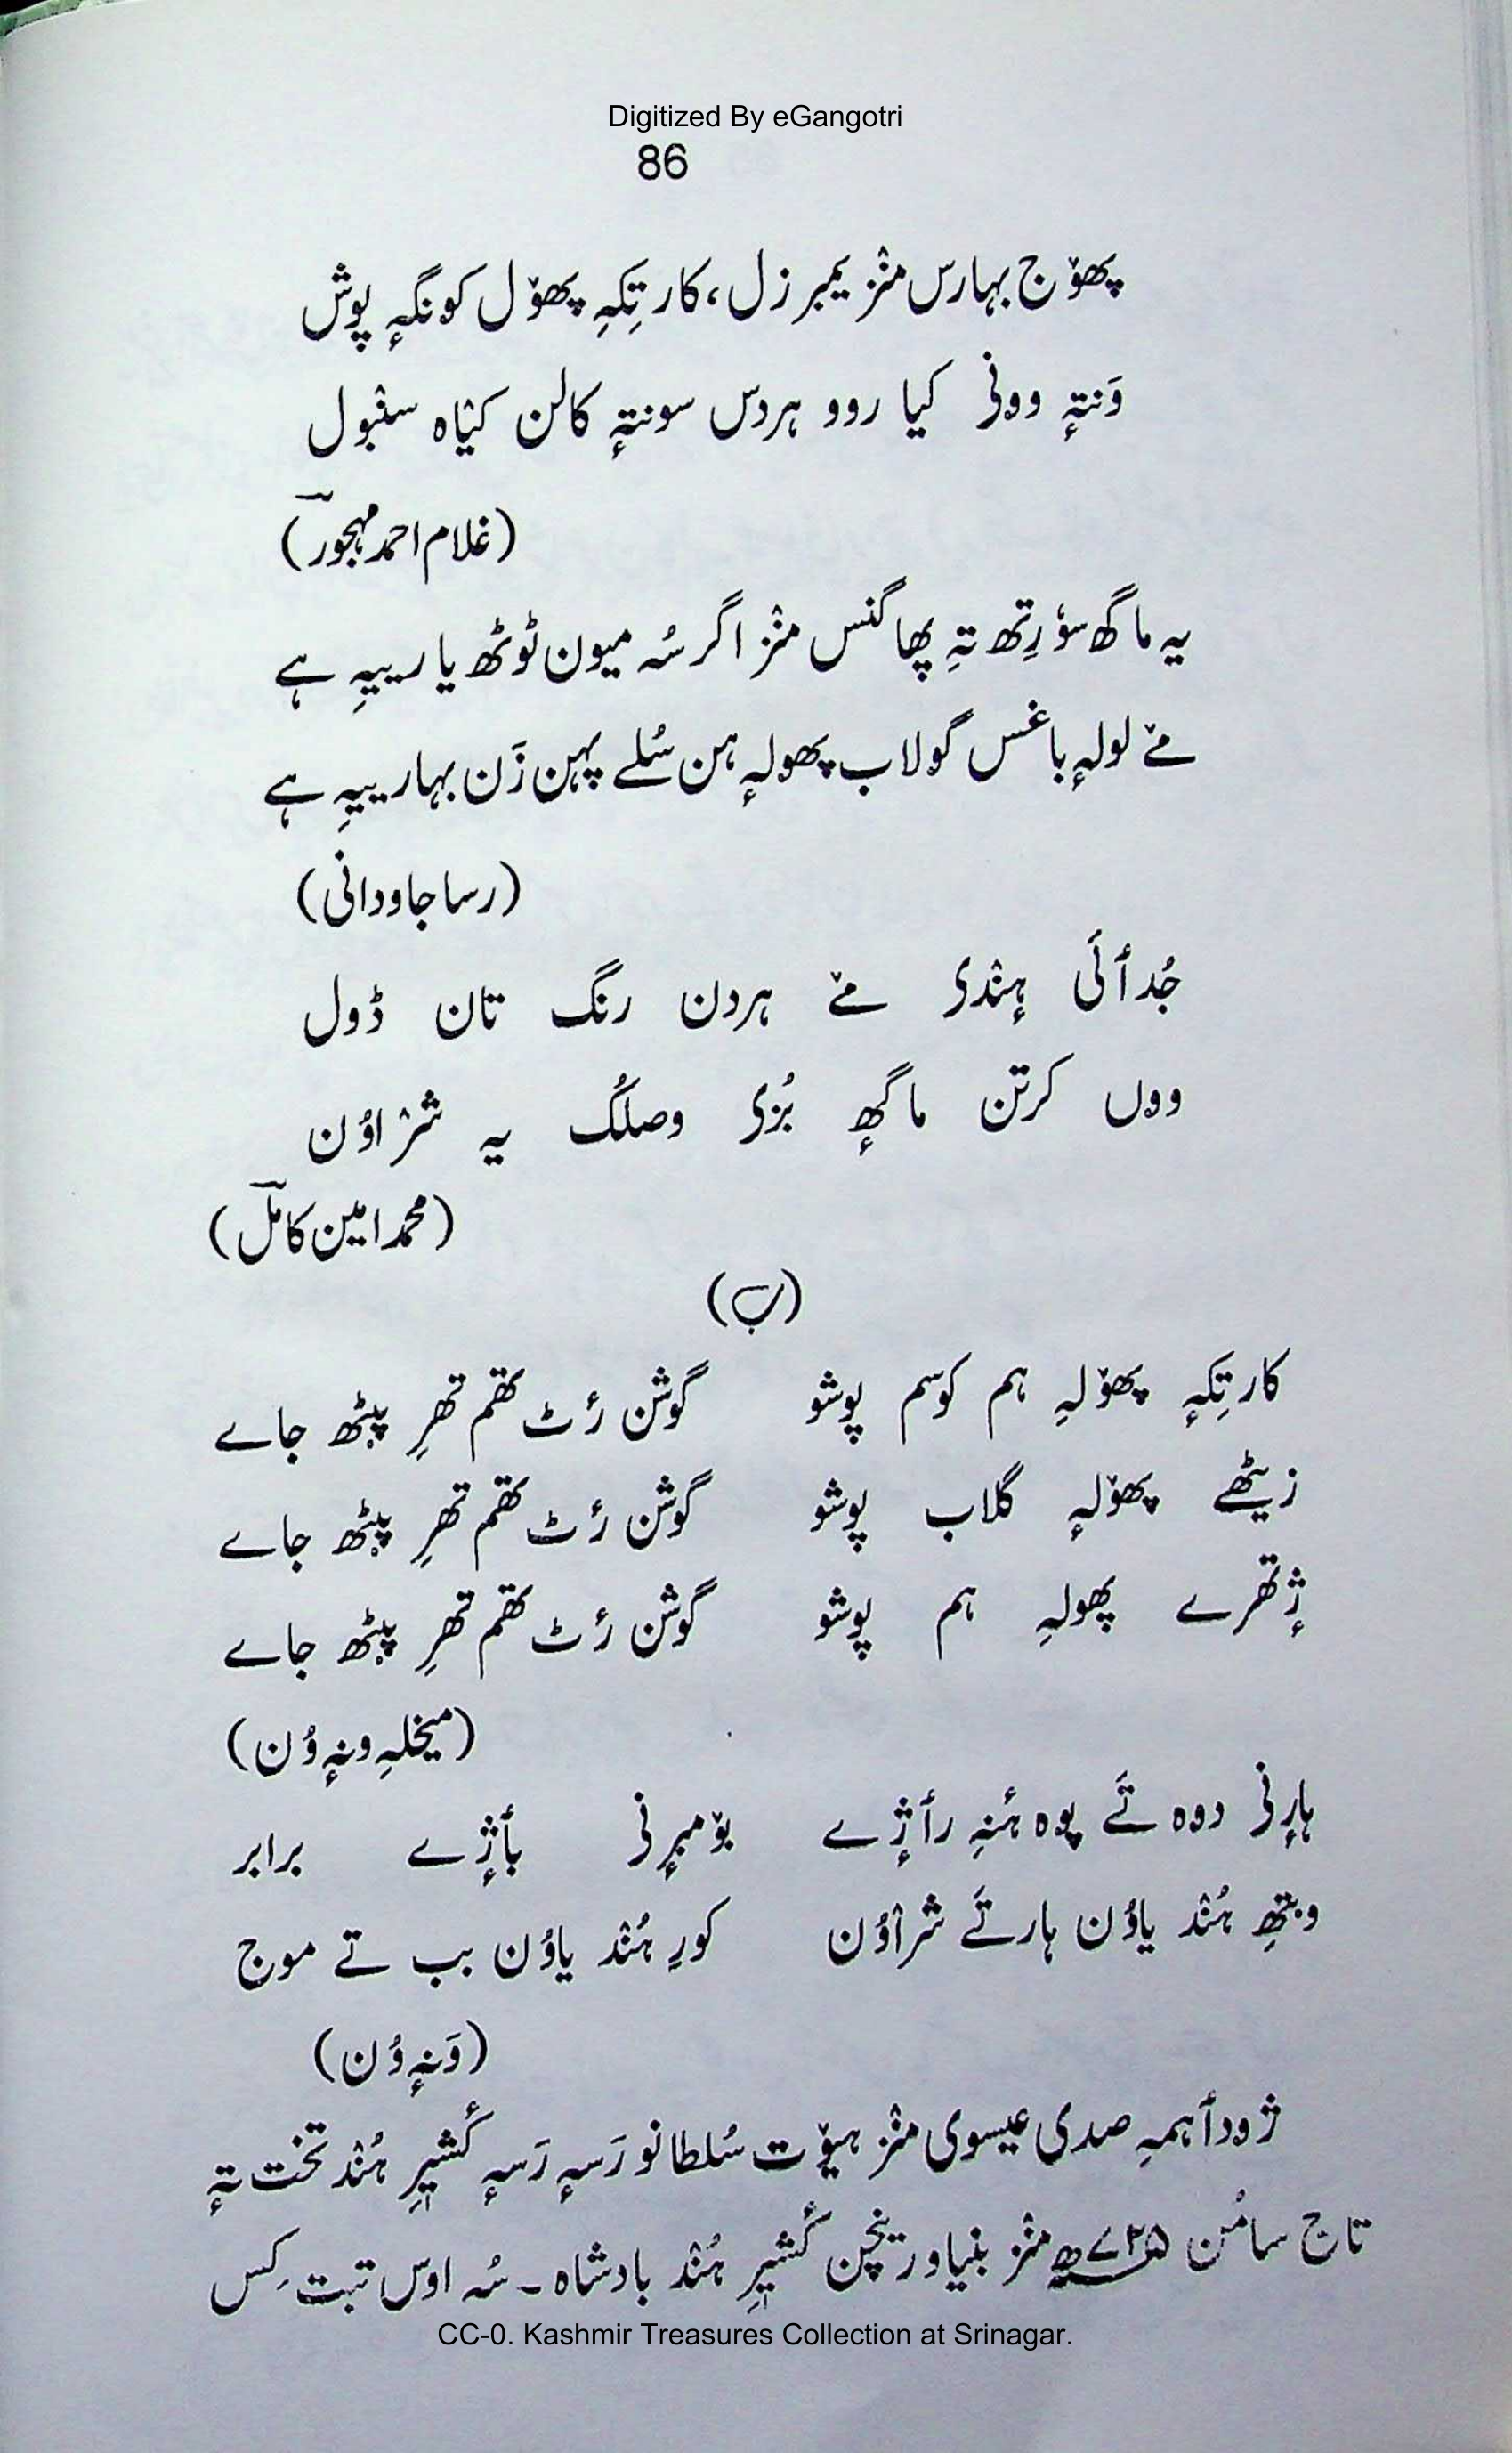 Digitized By eGangotri
86
پھۆج بہارس منٛز یمبرزل، کارتِکہِ پھۆل کونگہٕ پوش
وَنتہٕ وونی کیا روو ہردس سونتہٕ کالن کیٛاہ سنٛبول
(غلام احمد مہجورؔ)
یہ ماگھ سۆرِتھ تہِ پھاگنس منٛز اگر سُہ میون ٹوٹھ یار ییہِ ہے
مےٚ لولہٕ باغس گولاب پھولہٕ ہن سُلے پہن زَن بہار ییہِ ہے
(رسا جاودانی)
جُدٲئی ہٕنٛدی مےٚ ہردن رنگ تان ڈول
وۄں کرتن ماگھٕ بُزی وصلُک یہ شرٛاوُن
(محمد امین کاملؔ)
(ب)
کارتِکہٕ پھۆلہِ ہم کوسم پوشو گوشن رٔٹ تھم تھرِ پیٹھ جاے
زیٹھے پھۆلہٕ گلاب پوشو گوشن رٔٹ تھم تھرِ پیٹھ جاے
ژٕتھرے پھولہِ ہم پوشو گوشن رٔٹ تھم تھرِ پیٹھ جاے
(میخلہِ ونہٕ وُن)
ہارٕنی دوہ تَے پوہ ۂنہِ رٲژٕے بۆمبرٕنی بٲژٕے برابر
وبتھِ ہُنٛد یاوُن ہارتَے شرٛاوُن کورِ ہُنٛد یاوُن بب تے موج
(وَنہٕ وُن)
ژوداہمہِ صدی عیسوی منٛز ہیۆت سُلطانو رَسہٕ رَسہٕ کٔشیٖرِ ہُنٛد تخت تہٕ
تاج سامُن ۷۲۵ھ منٛز بنیاو رینٛچن کٔشیٖرِ ہُنٛد بادشاہ۔ سُہ اوس تبت کِس
CC-0. Kashmir Treasures Collection at Srinagar.